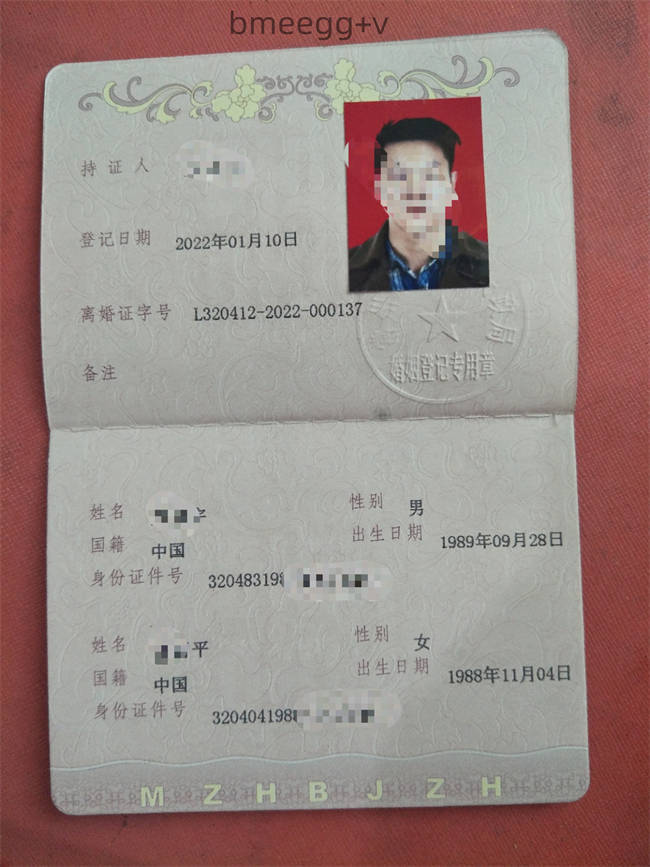 bmeegg+v
持证人
登记日期 2022年01月10日
离婚证字号 L320412-2022-000137
备注
婚姻登记专用章
姓名 性别 男
国籍 中国 出生日期 1989年09月28日
身份证件号 320483198
姓名 平 性别 女
国籍 中国 出生日期 1988年11月04日
身份证件号 320404198
MZHBJZH